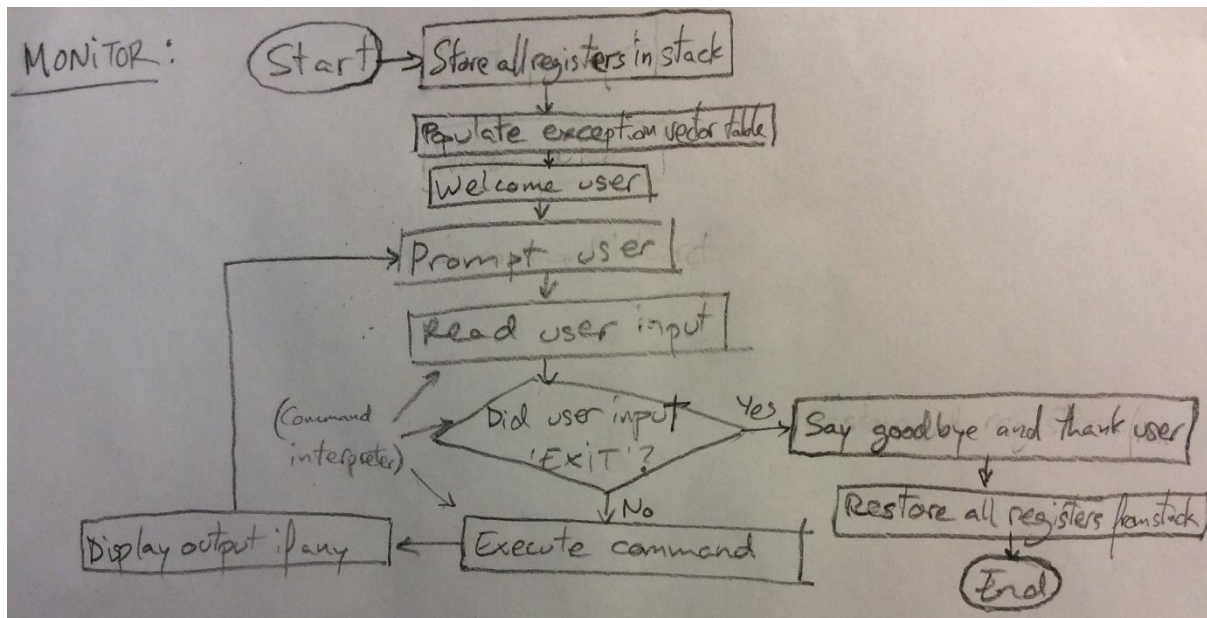 MONITOR:
Start
Store all registers in stack
Populate exception vector table
Welcome user
Prompt user
Read user input
(Command
interpreter)
Did user input
'EXIT'?
Yes
Say goodbye and thank user
Restore all registers from stack
End
No
Execute command
Display output if any